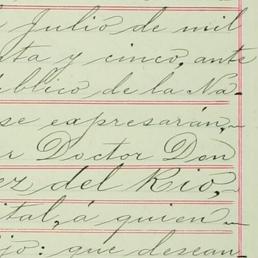 Julio de mil
ta y cinco, ante
blico de la Na-
se expresarán,
r Doctor Don
ez del Rio,
ital, á quien
jo: que desean